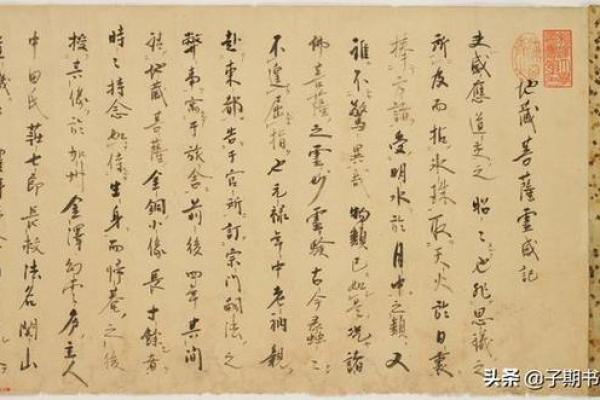 地藏菩薩靈感記
夫感應道交之昭々也非思議之
所及而拈氷珠取天火於日裏
捧方諸受明水於月中之類又
誰不驚異哉物類已如是況諸
佛菩薩之靈妙靈驗古今蟲々
不遑屈指也元禄年中老衲親
赴東都告于官所訂宗門嗣法之
弊而寓于旅舍前後四年其間
地藏菩薩金銅小像長寸餘者
時々持念如侍生身而帰菴之後
授其像於加州金澤幻雲房主人
中田氏莊七郎長救法名関山
头条 @子期书